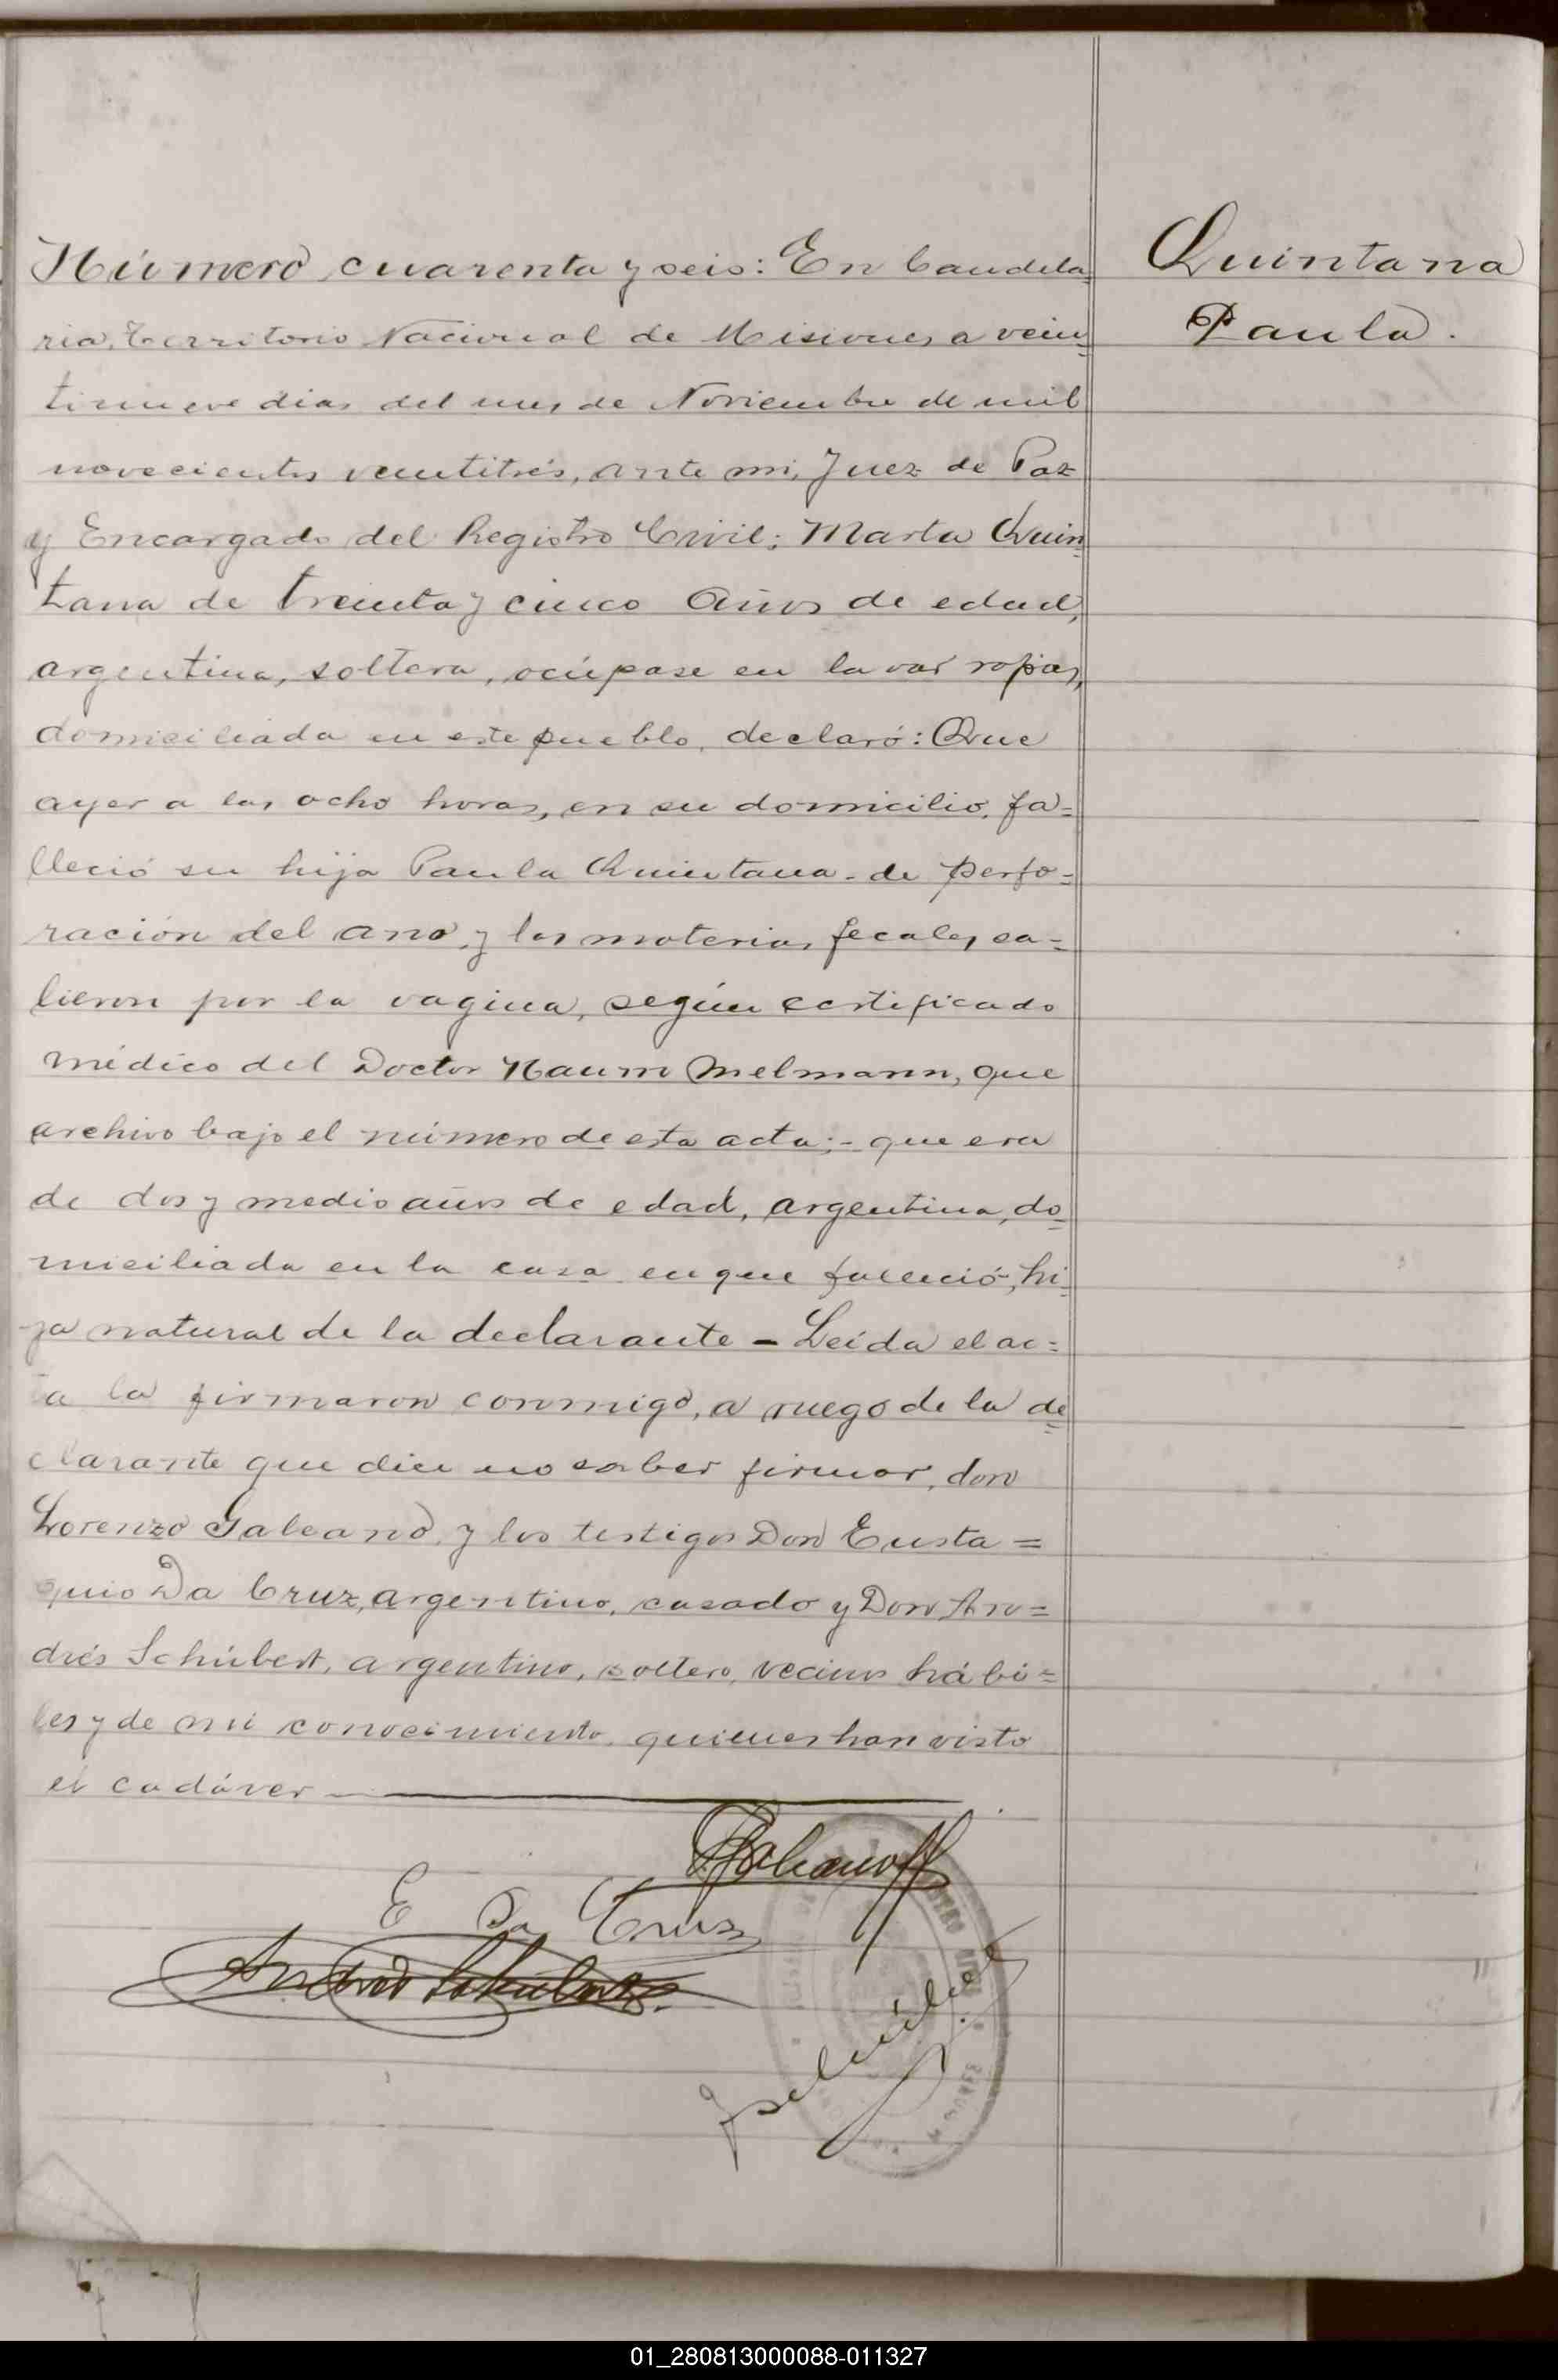 Número cuarenta y seis: En Candela=
Quintana
Paula.
ria, Territorio Nacional de Misiones, a vein=
tinueve dias del mes de Noviembre de mil
novecientos veintitrés, ante mi, Juez de Paz
y Encargado del Registro Civil; Marta Quin=
tana de treinta y cinco años de edad,
argentina, soltera, ocúpase en lavar ropas,
domiciliada en este pueblo, declaró: Que
ayer a las ocho horas, en su domicilio, fa=
lleció su hija Paula Quintana - de perfo=
ración del ano y las materias fecales sa=
lieron por la vagina, según certificado
médico del Doctor Naum Melmann, que
archivo bajo el número de esta acta; - que era
de dos y medio años de edad, argentina, do=
miciliada en la casa en que falleció, hi=
ja natural de la declarante - Leída el ac=
ta la firmaron conmigo, a ruego de la de=
clarante que dice no saber firmar, don
Lorenzo Galeano, y los testigos Don Eusta=
quio Da Cruz, argentino, casado y Don An=
drés Schúbert, argentino, soltero, vecinos hábi=
les y de mi conocimiento, quienes han visto
el cadáver
E Da Cruz
01_280813000088-011327